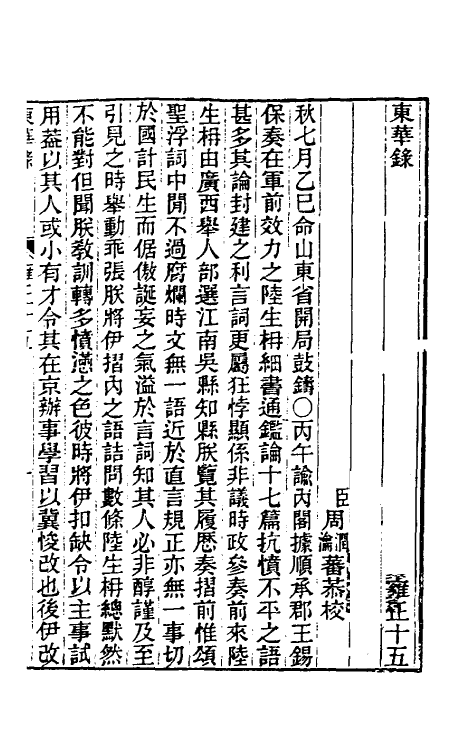 東華錄
雍正十五
臣周潤蕃恭校
瀹
秋七月乙巳命山東省開局鼓鑄〇丙午諭內閣據順承郡王錫
保奏在軍前效力之陸生枬細書通鑑論十七篇抗憤不平之語
甚多其論封建之利言詞更屬狂悖顯係非議時政參奏前來陸
生枬由廣西舉人部選江南吳縣知縣朕覽其履歷奏摺前惟頌
聖浮詞中閒不過腐爛時文無一語近於直言規正亦無一事切
於國計民生而倨傲誕妄之氣溢於言詞知其人必非醇謹及至
引見之時舉動乖張朕將伊摺內之語詰問數條陸生枬總默然
不能對但聞朕敎訓轉多憤懣之色彼時將伊扣缺令以主事試
用葢以其人或小有才令其在京辦事學習以冀悛改也後伊改
東華錄